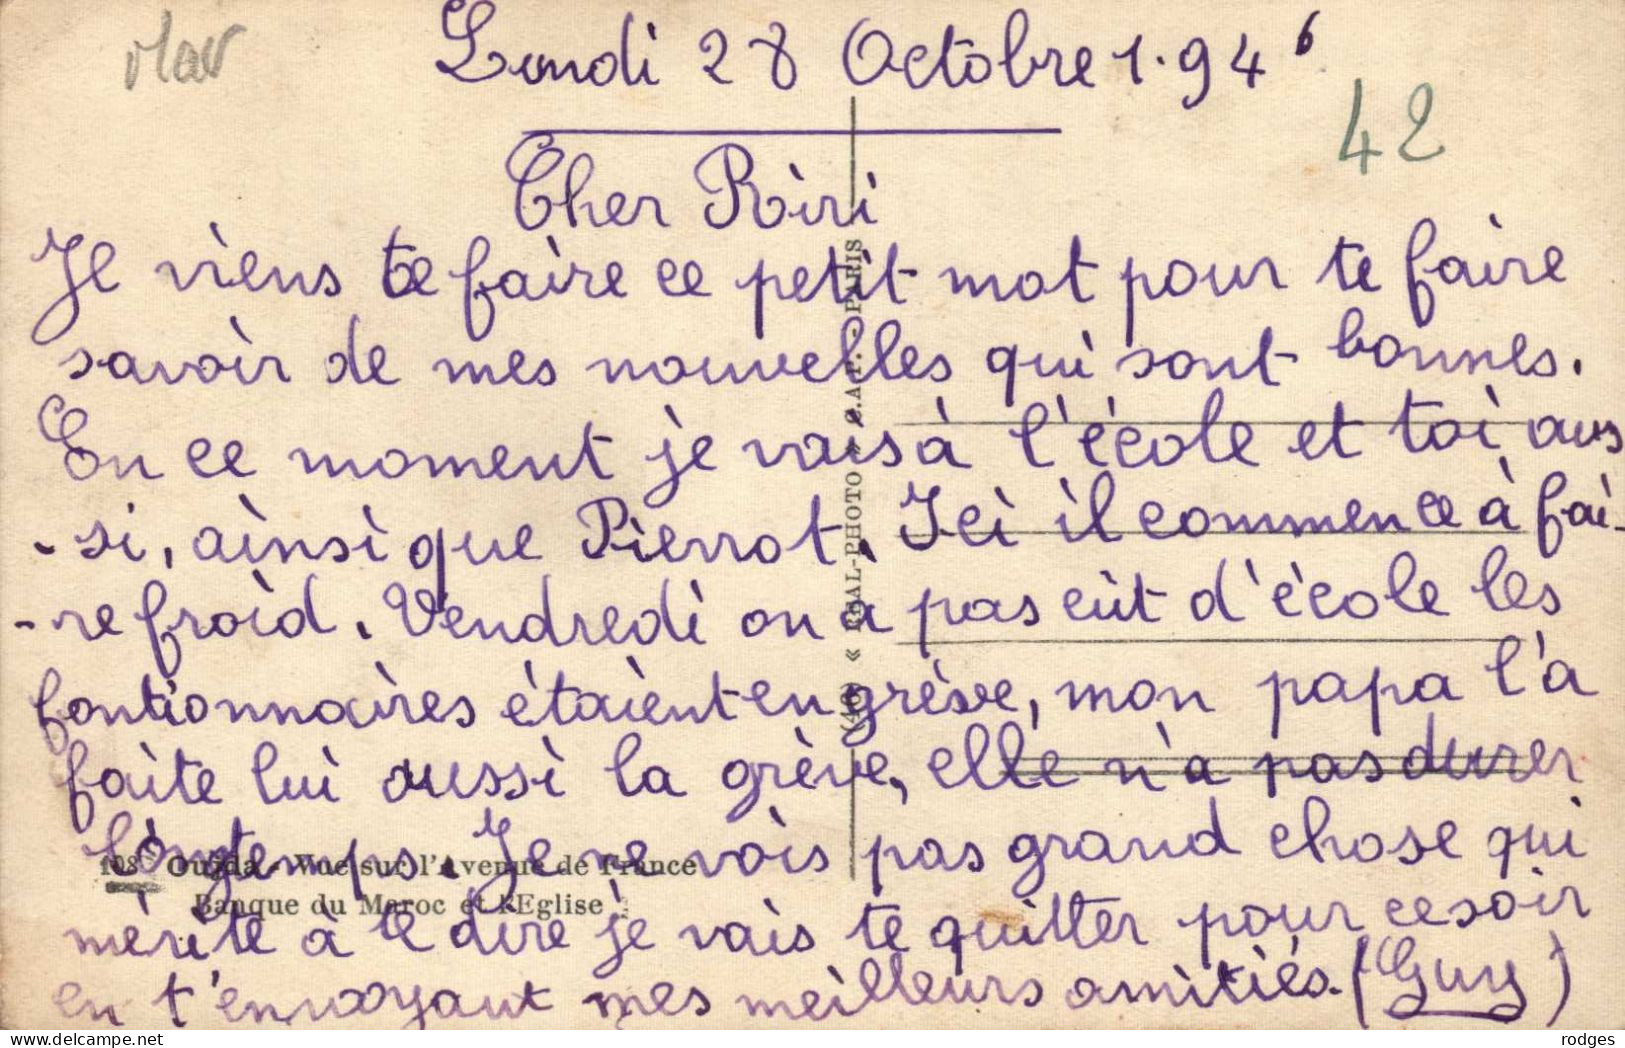 Mar
Lundi 28 Octobre 1.946
42
Cher Riri
Je viens te faire ce petit mot pour te faire
savoir de mes nouvelles qui sont bonnes.
En ce moment je vais à l'école et toi aus
-si, ainsi que Pierrot. Ici il commence à fai-
-re froid. Vendredi on a pas eût d'école les
fontionnaires étaient en grève, mon papa l'a
faite lui aussi la grève, elle n'a pas durer
longtemps. Je ne vois pas grand chose qui
mérite à te dire je vais te quitter pour ce soir
en t'envoyant mes meilleurs amitiés. (Guy)
108 Oujda - Vue sur l'Avenue de France
Banque du Maroc et l'Eglise
« REAL-PHOTO » C.A.P. - PARIS
delcampe.net
rodges